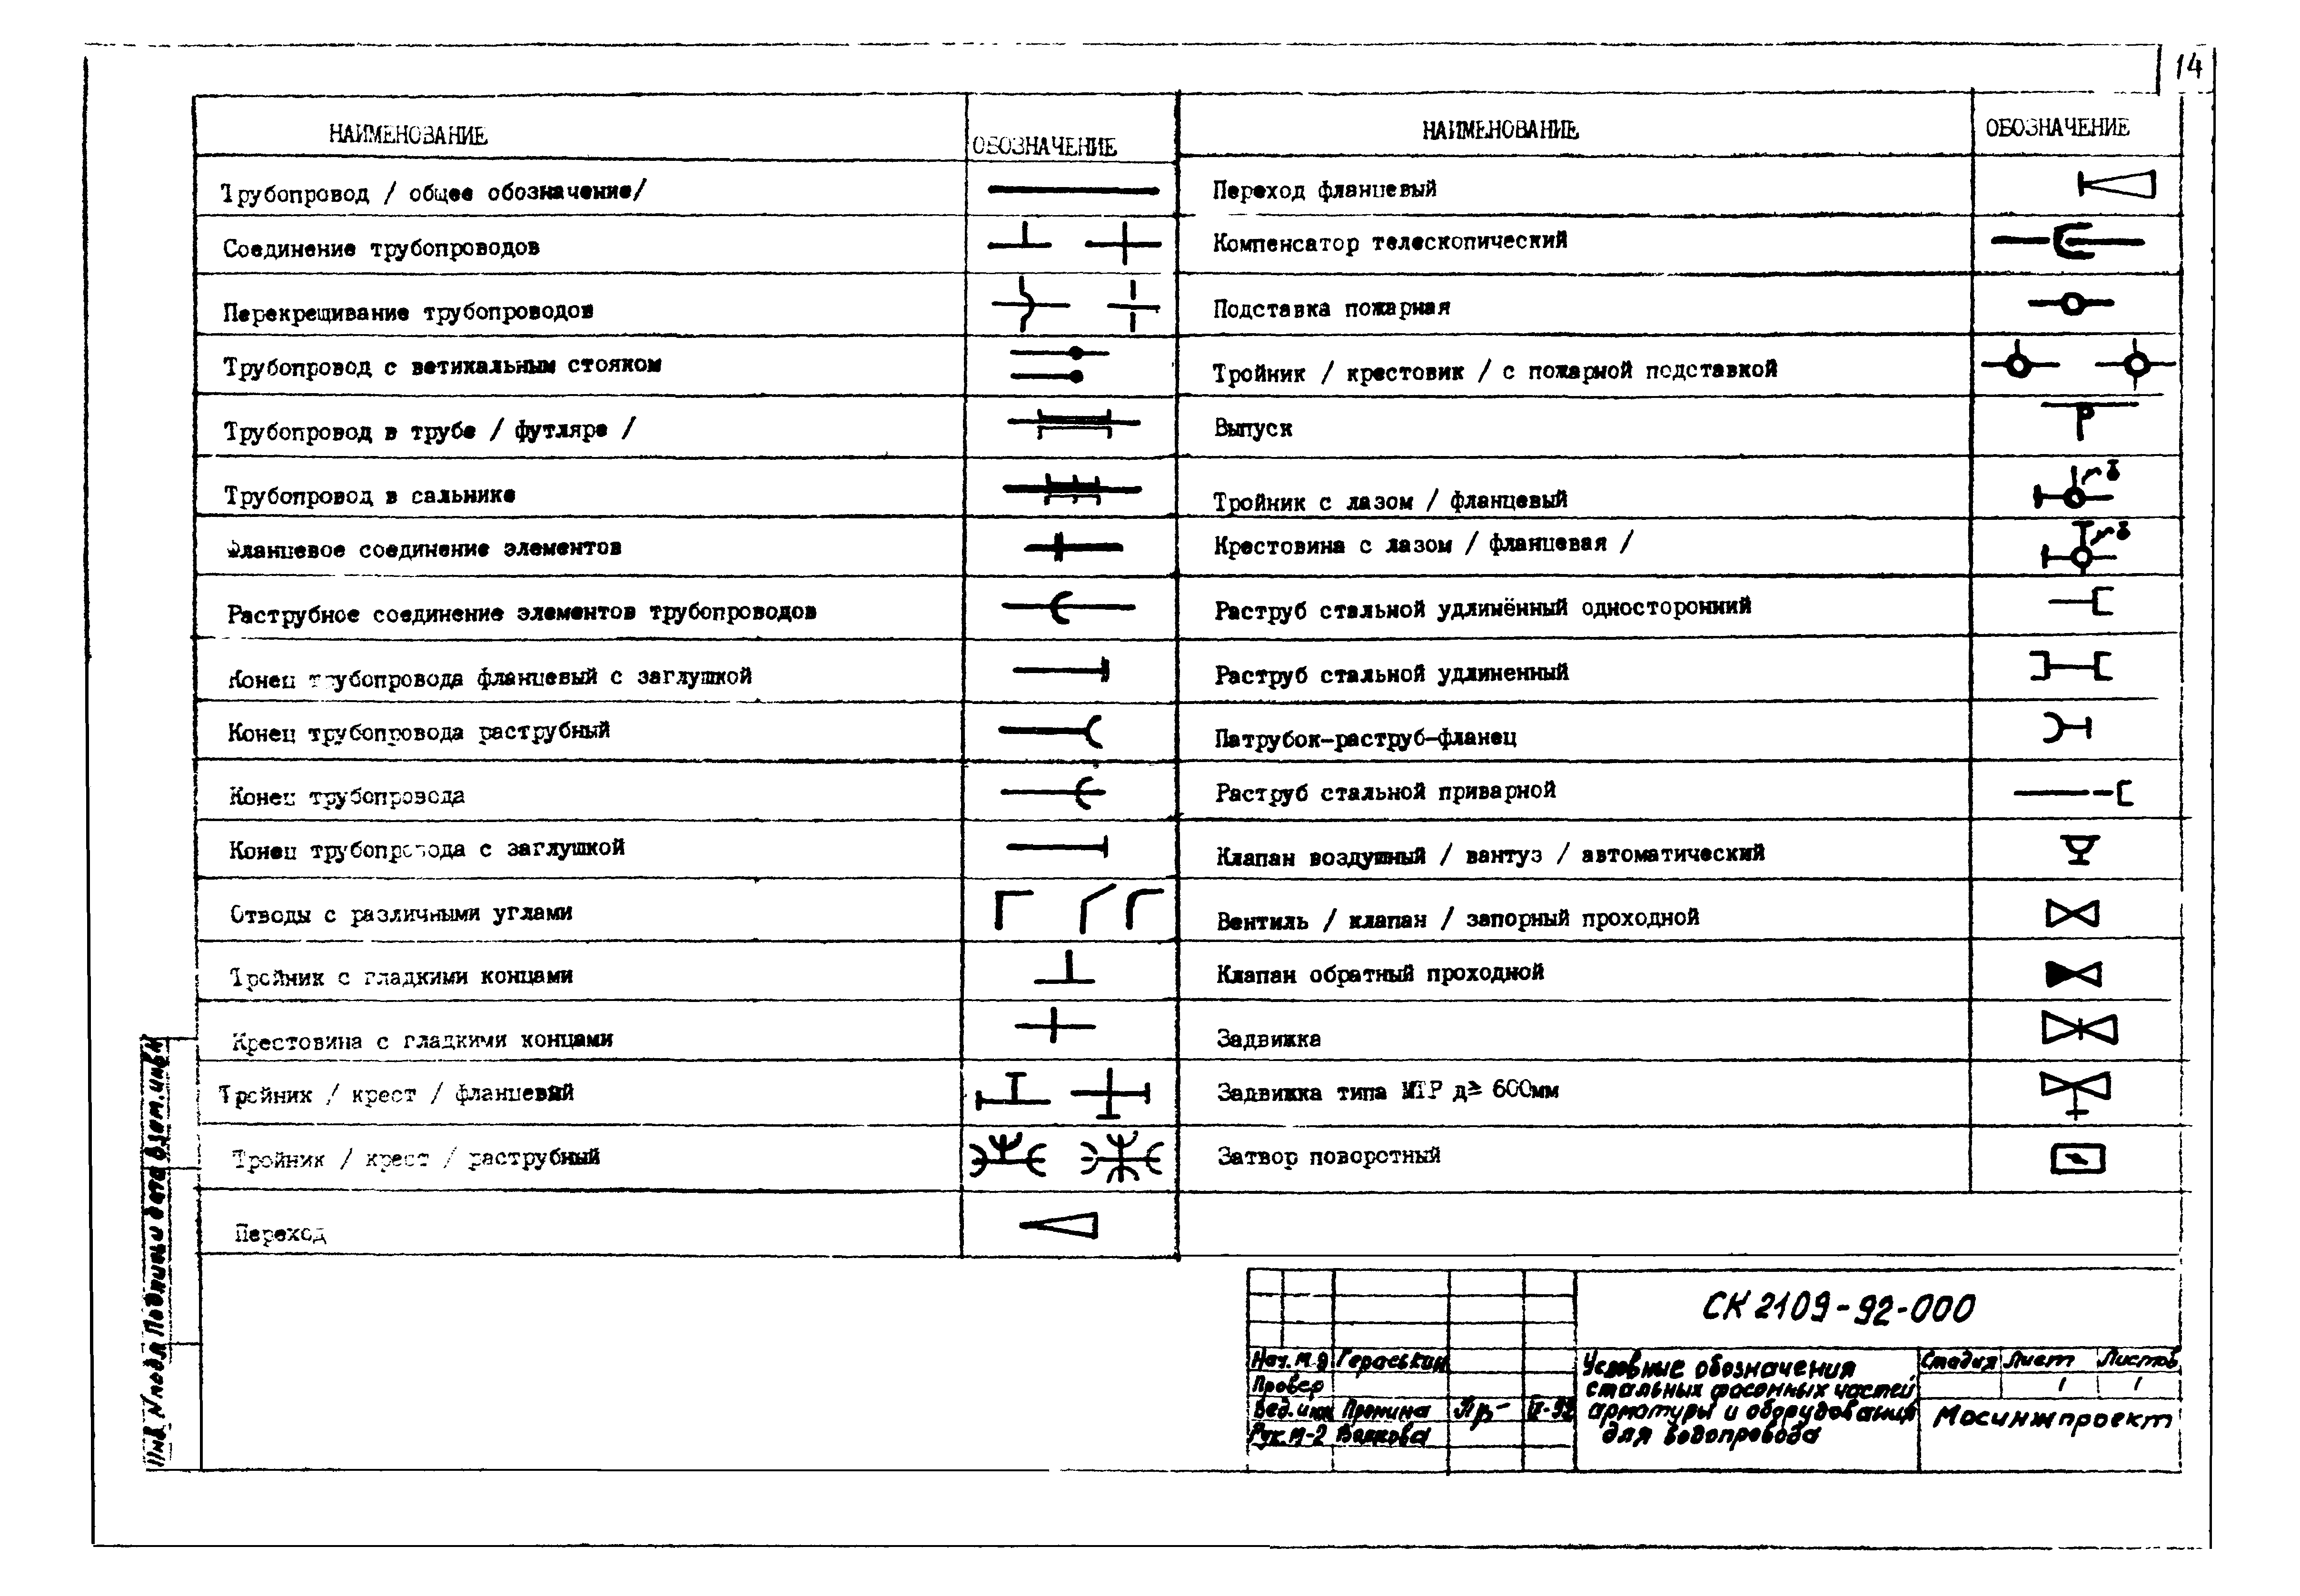 14
НАИМЕНОВАНИЕ
ОБОЗНАЧЕНИЕ
Трубопровод / общее обозначение/
Соединение трубопроводов
Перекрещивание трубопроводов
Трубопровод с ветикальным стояком
Трубопровод в трубе / футляре /
Трубопровод в сальнике
Фланцевое соединение элементов
Раструбное соединение элементов трубопроводов
Конец трубопровода фланцевый с заглушкой
Конец трубопровода раструбный
Конец трубопровода
Конец трубопровода с заглушкой
Отводы с различными углами
Тройник с гладкими концами
Крестовина с гладкими концами
Тройник / крест / фланцевый
Тройник / крест / раструбный
Переход
НАИМЕНОВАНИЕ
ОБОЗНАЧЕНИЕ
Переход фланцевый
Компенсатор телескопический
Подставка пожарная
Тройник / крестовик / с пожарной подставкой
Выпуск
Р
Тройник с лазом / фланцевый
Крестовина с лазом / фланцевая /
Раструб стальной удлинённый односторонний
Раструб стальной удлиненный
Патрубок-раструб-фланец
Раструб стальной приварной
Клапан воздушный / вантуз / автоматический
Вентиль / клапан / запорный проходной
Клапан обратный проходной
Задвижка
Задвижка типа МТР д≥ 600мм
Затвор поворотный
СК 2109-92-000
Нач. М.9 Гераськин
Провер
Вед. инж Пронина Пр- VI-92
Рук. М-2 Волкова
Условные обозначения
стальных фасонных частей
арматуры и оборудования
для водопровода
Стадия Лист Листов
1 1
Мосинжпроект
Инв. N подл Подпись и дата Взам. инв N